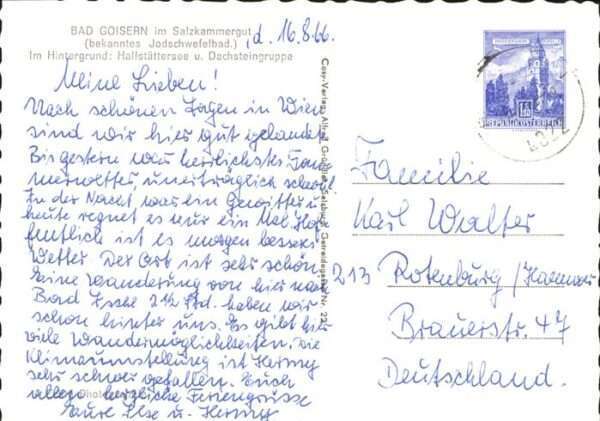 BAD GOISERN im Salzkammergut
(bekanntes Jodschwefelbad.)
Im Hintergrund: Hallstättersee u. Dachsteingruppe
d. 16.8.66.
Meine Lieben!
Nach schönen Tagen in Wien
sind wir hier gut gelandet
Bis gestern war herrlichstes Som
merwetter, unerträglich schwül
In der Nacht war ein Gewitter u.
heute regnet es nur ein Mal. Hof
fentlich ist es morgen besseres
Wetter. Der Ort ist sehr schön
Eine Wanderung von hier nach
Bad 2½ Std. haben wir
schon hinter uns. Es gibt hier
viele Wandermöglichkeiten. Die
Klimaumstellung ist
sehr schwer gefallen. Euch
allen herzliche Feriengrüsse
Eure Ilse u.
Cosy-Verlag Alfred Salzburg, Getreidegasse Nr. 22
REPUBLIK ÖSTERREICH
4822
Familie
Karl Walter
213 Rotenburg/Hannover
Brauerstr. 47
Deutschland.